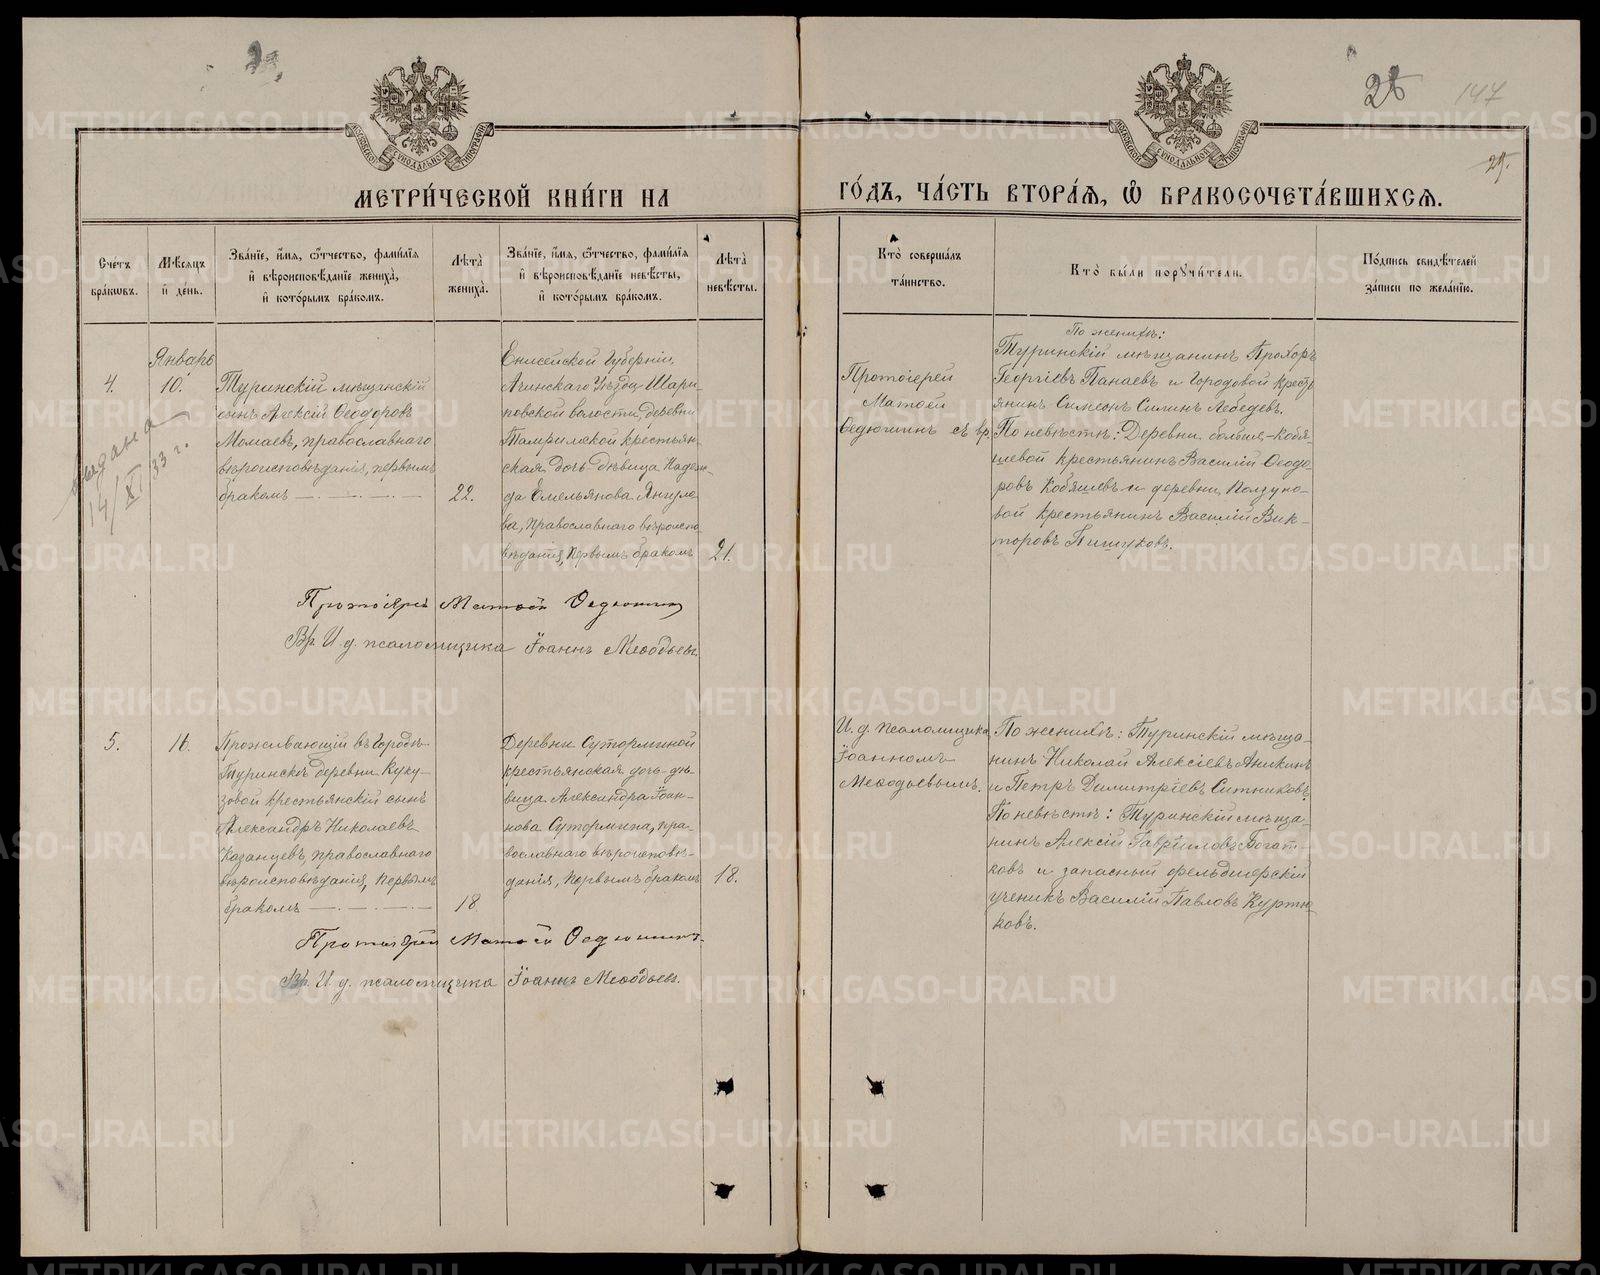 28
147
29.
МОСКОВСКОЙ СѴНОДАЛЬНОЙ ТИПОГРАФІИ
МОСКОВСКОЙ СѴНОДАЛЬНОЙ ТИПОГРАФІИ
МЕТРИ́ЧЕСКОЙ КНИ́ГИ НА
ГО́ДЪ, ЧА́СТЬ ВТОРА́Я, Ѡ҆ БРАКОСОЧЕТА́ВШИХСЯ.
Сче́тъ бра́ковъ.
Мѣ́сяцъ и҆ де́нь.
Зва́нїе, и҆́мя, ѻ҆́тчество, фами́лїя
и҆ вѣроисповѣ́данїе жениха̀,
и҆ кото́рымъ бра́комъ.
Лѣта̀ жениха̀.
Зва́нїе, и҆́мя, ѻ҆́тчество, фами́лїя
и҆ вѣроисповѣ́данїе невѣ́сты,
и҆ кото́рымъ бра́комъ.
Лѣта̀ невѣ́сты.
Кто̀ соверша́лъ та́инство.
Кто̀ бы́ли поручи́тели.
По́дпись свидѣ́телей за́писи по жела́нїю.
выдана
14/XI 33 г.
4.
Январь
10.
Туринскій мѣщанскій
сынъ Алексій Ѳеодоровъ
Момаевъ, православнаго
вѣроисповѣданія, первымъ
бракомъ
22.
Енисейской Губерніи,
Ачинскаго Уѣзда Шари-
повской волости, деревни
крестьян-
ская дочь дѣвица Надеж-
да Емельянова Янгуло-
ва, православнаго вѣроиспо-
вѣданія, первымъ бракомъ
21.
Протоіерей
Матѳей
Ѳедюшинъ съ вр.
По женихѣ:
Туринскій мѣщанинъ Прохоръ
Георгіевъ Панаевъ и Городовой крестья-
янинъ Симеонъ Силинъ Лебедевъ.
По невѣстѣ: Деревни больше-Кобя-
шевой крестьянинъ Василій Ѳеодо-
ровъ Кобяшевъ и деревни Ползуно-
вой крестьянинъ Василій Вик-
торовъ Пищуковъ.
Протоіерей Матѳей Ѳедюшинъ
Вр. И. д. псаломщика Іоаннъ Меѳодьевъ.
5.
16.
Проживающій въ Городѣ
Туринскѣ деревни Куку-
зовой крестьянскій сынъ
Александръ Николаевъ
Казанцевъ, православнаго
вѣроисповѣданія, первымъ
бракомъ
18.
Деревни Суторминой
крестьянская дочь дѣ-
вица Александра Іоан-
нова Сутормина, пра-
вославнаго вѣроисповѣ-
данія, первымъ бракомъ
18.
И. д. псаломщика
Іоанномъ
Меѳодьевымъ.
По женихѣ: Туринскій мѣща-
нинъ Николай Алексіевъ Аникинъ
и Петръ Димитріевъ Ситниковъ.
По невѣстѣ: Туринскій мѣща-
нинъ Алексій Гавріиловъ Богат-
ковъ и запасный фельдшерскій
ученикъ Василій Павловъ Куртю-
ковъ.
Протоіерей Матѳей Ѳедюшинъ.
Вр. И. д. псаломщика Іоаннъ Меѳодьевъ.
METRIKI.GASO-URAL.RU